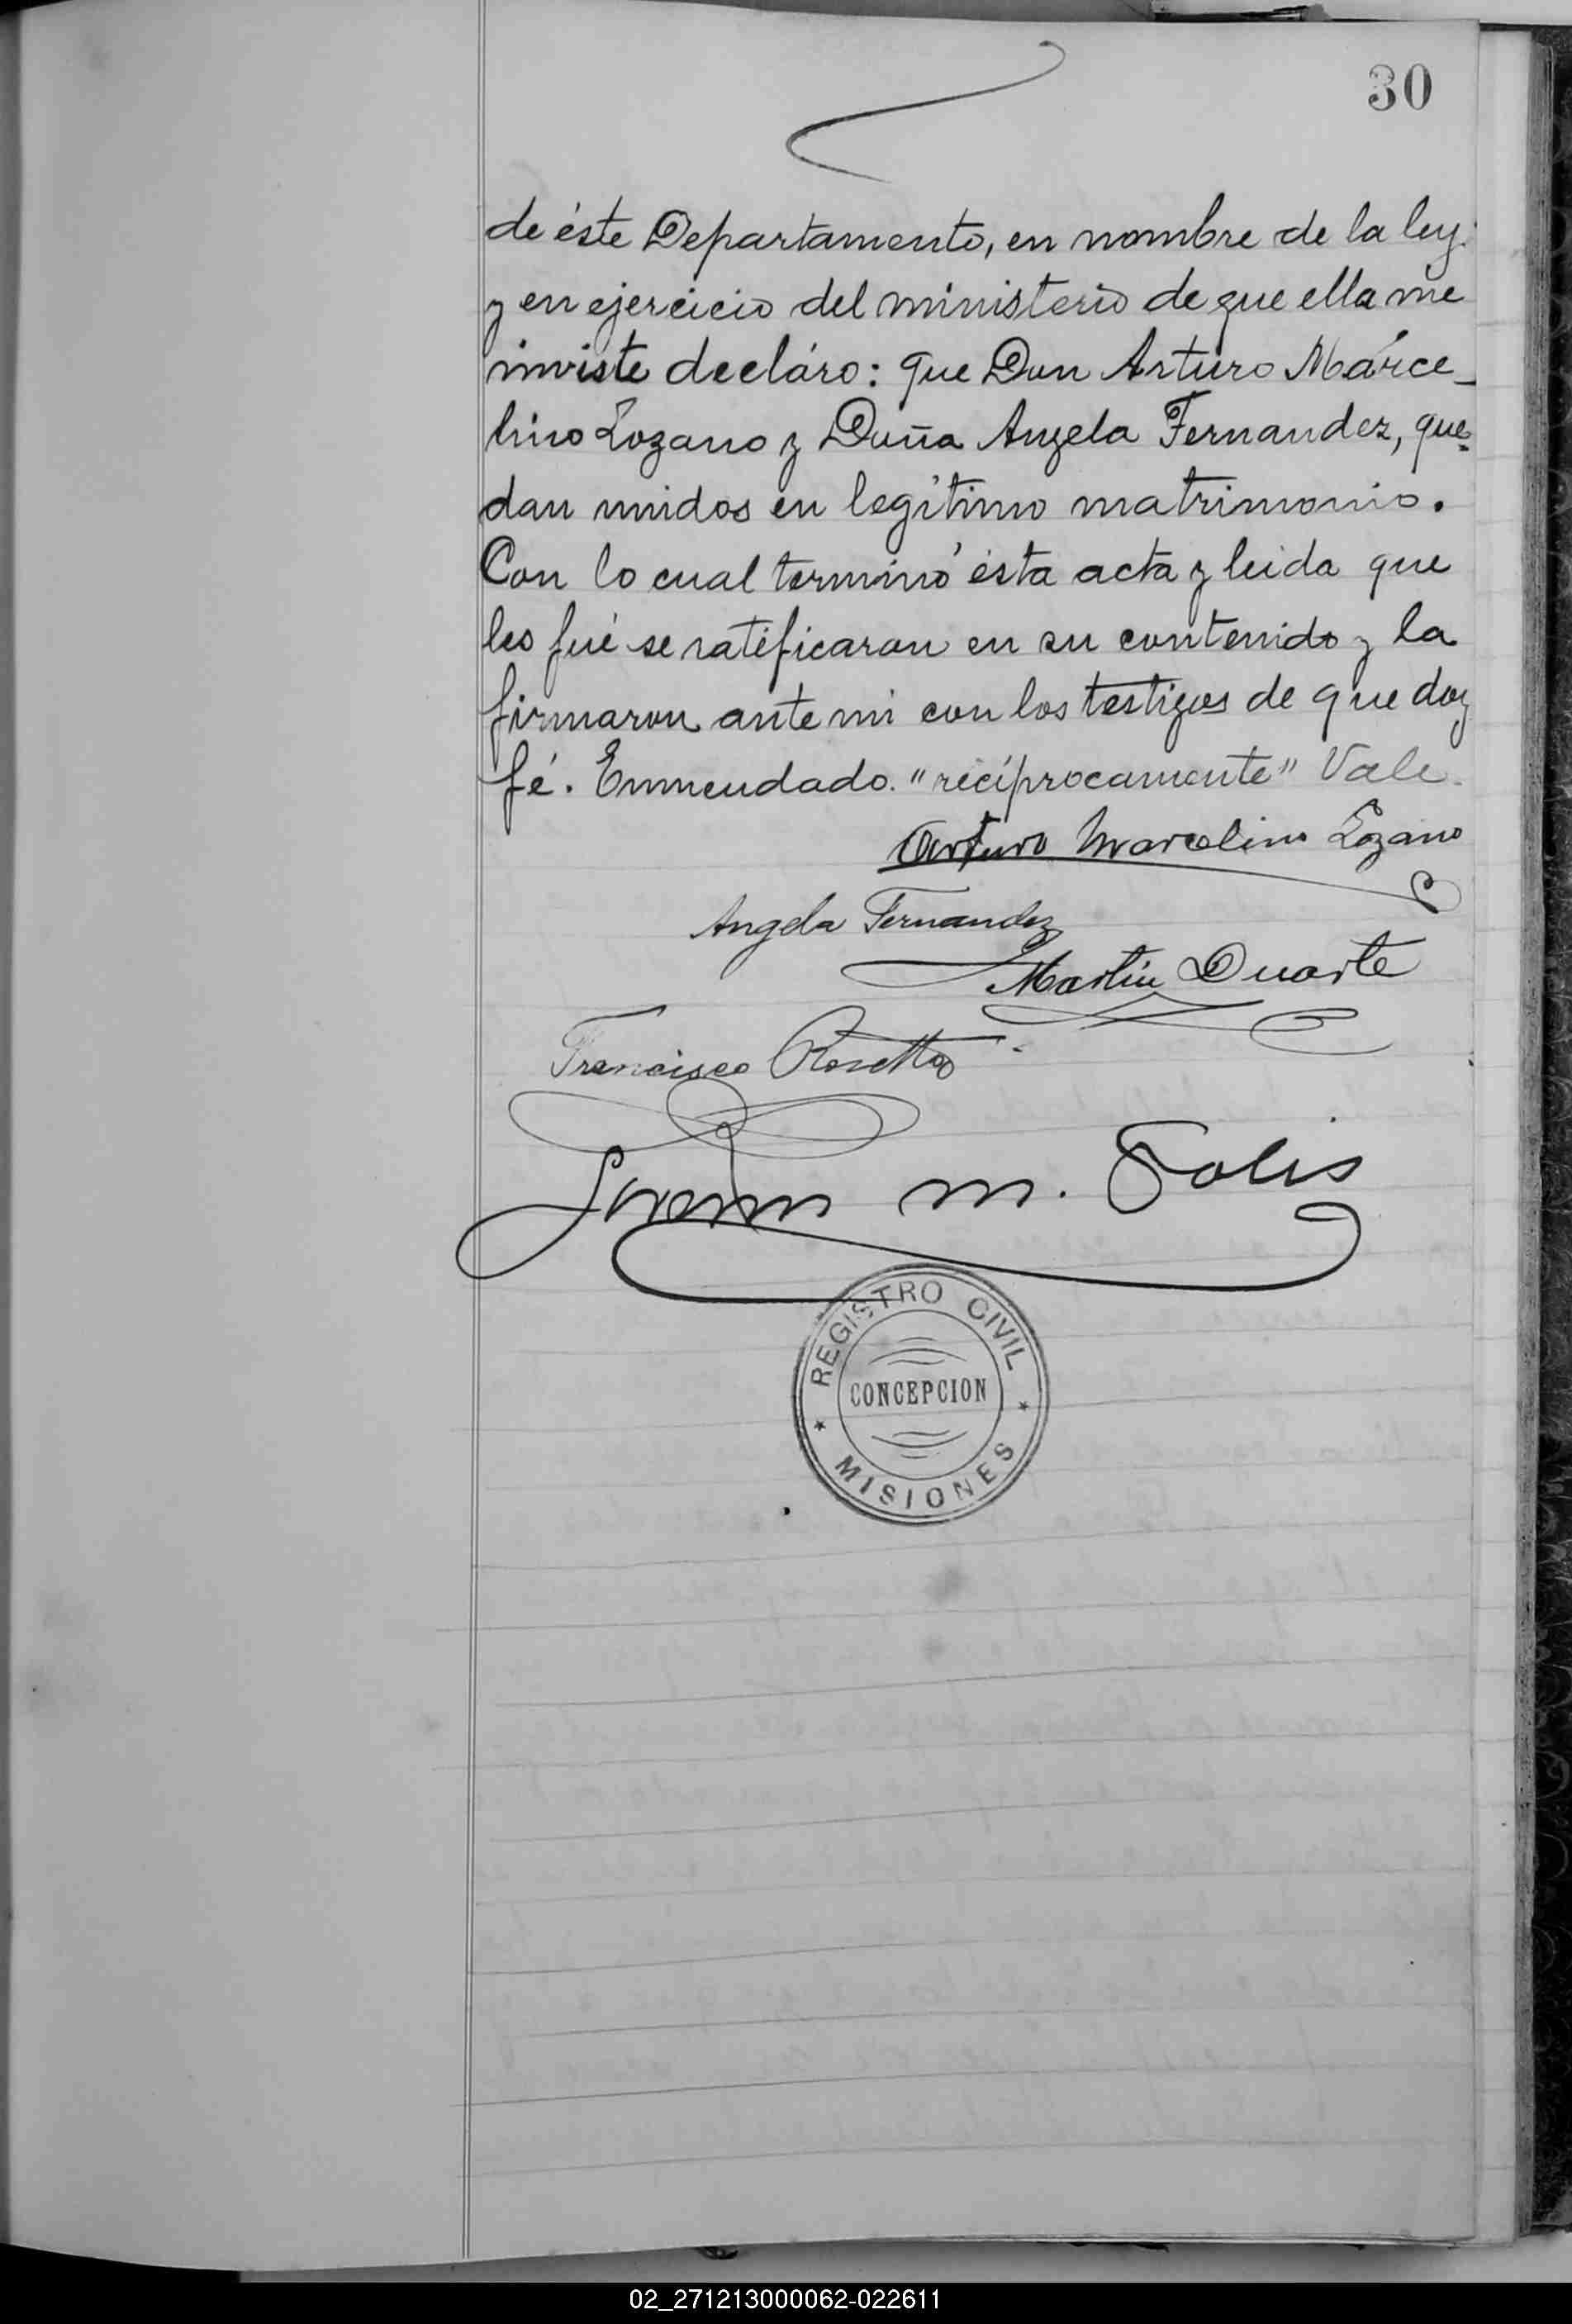 30
de éste Departamento, en nombre de la ley
y en ejercicio del ministerio de que ella me
inviste decláro: que Don Arturo Márce-
lino Lozano y Doña Angela Fernandez, que-
dan unidos en legítimo matrimonio.
Con lo cual terminó ésta acta y leida que
les fué se ratificaron en su contenido y la
firmaron ante mi con los testigos de que doy
fé. Enmendado. "recíprocamente" Vale
Arturo Marcelino Lozano
Angela Fernandez
Martin Duarte
Francisco Rosetto
m. Solis
REGISTRO CIVIL
CONCEPCION
MISIONES
02_271213000062-022611